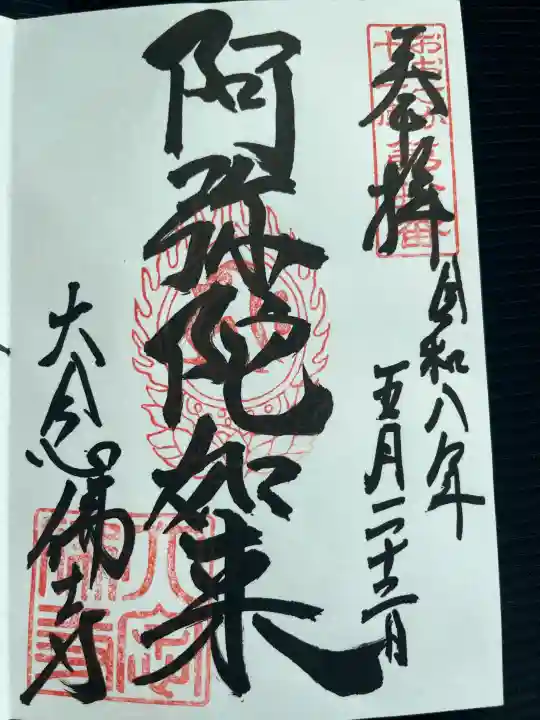 奉拝
令和八年
五月二十二日
阿弥陀如来
大念佛寺
おおさか